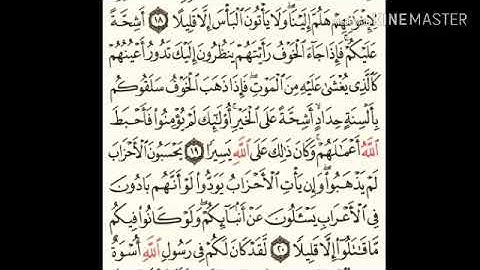 لِإِخْوَٰنِهِمْ هَلُمَّ إِلَيْنَا ۖ وَلَا يَأْتُونَ ٱلْبَأْسَ إِلَّا قَلِيلًا ١٨ أَشِحَّةً
عَلَيْكُمْ ۖ فَإِذَا جَآءَ ٱلْخَوْفُ رَأَيْتَهُمْ يَنظُرُونَ إِلَيْكَ تَدُورُ أَعْيُنُهُمْ
كَٱلَّذِى يُغْشَىٰ عَلَيْهِ مِنَ ٱلْمَوْتِ ۖ فَإِذَا ذَهَبَ ٱلْخَوْفُ سَلَقُوكُم
بِأَلْسِنَةٍ حِدَادٍ أَشِحَّةً عَلَى ٱلْخَيْرِ ۚ أُو۟لَٰٓئِكَ لَمْ يُؤْمِنُوا۟ فَأَحْبَطَ
ٱللَّهُ أَعْمَٰلَهُمْ ۚ وَكَانَ ذَٰلِكَ عَلَى ٱللَّهِ يَسِيرًا ١٩ يَحْسَبُونَ ٱلْأَحْزَابَ
لَمْ يَذْهَبُوا۟ ۖ وَإِن يَأْتِ ٱلْأَحْزَابُ يَوَدُّوا۟ لَوْ أَنَّهُم بَادُونَ
فِى ٱلْأَعْرَابِ يَسْـَٔلُونَ عَنْ أَنۢبَآئِكُمْ ۖ وَلَوْ كَانُوا۟ فِيكُم
مَّا قَٰتَلُوٓا۟ إِلَّا قَلِيلًا ٢٠ لَّقَدْ كَانَ لَكُمْ فِى رَسُولِ ٱللَّهِ أُسْوَةٌ
KINEMASTER